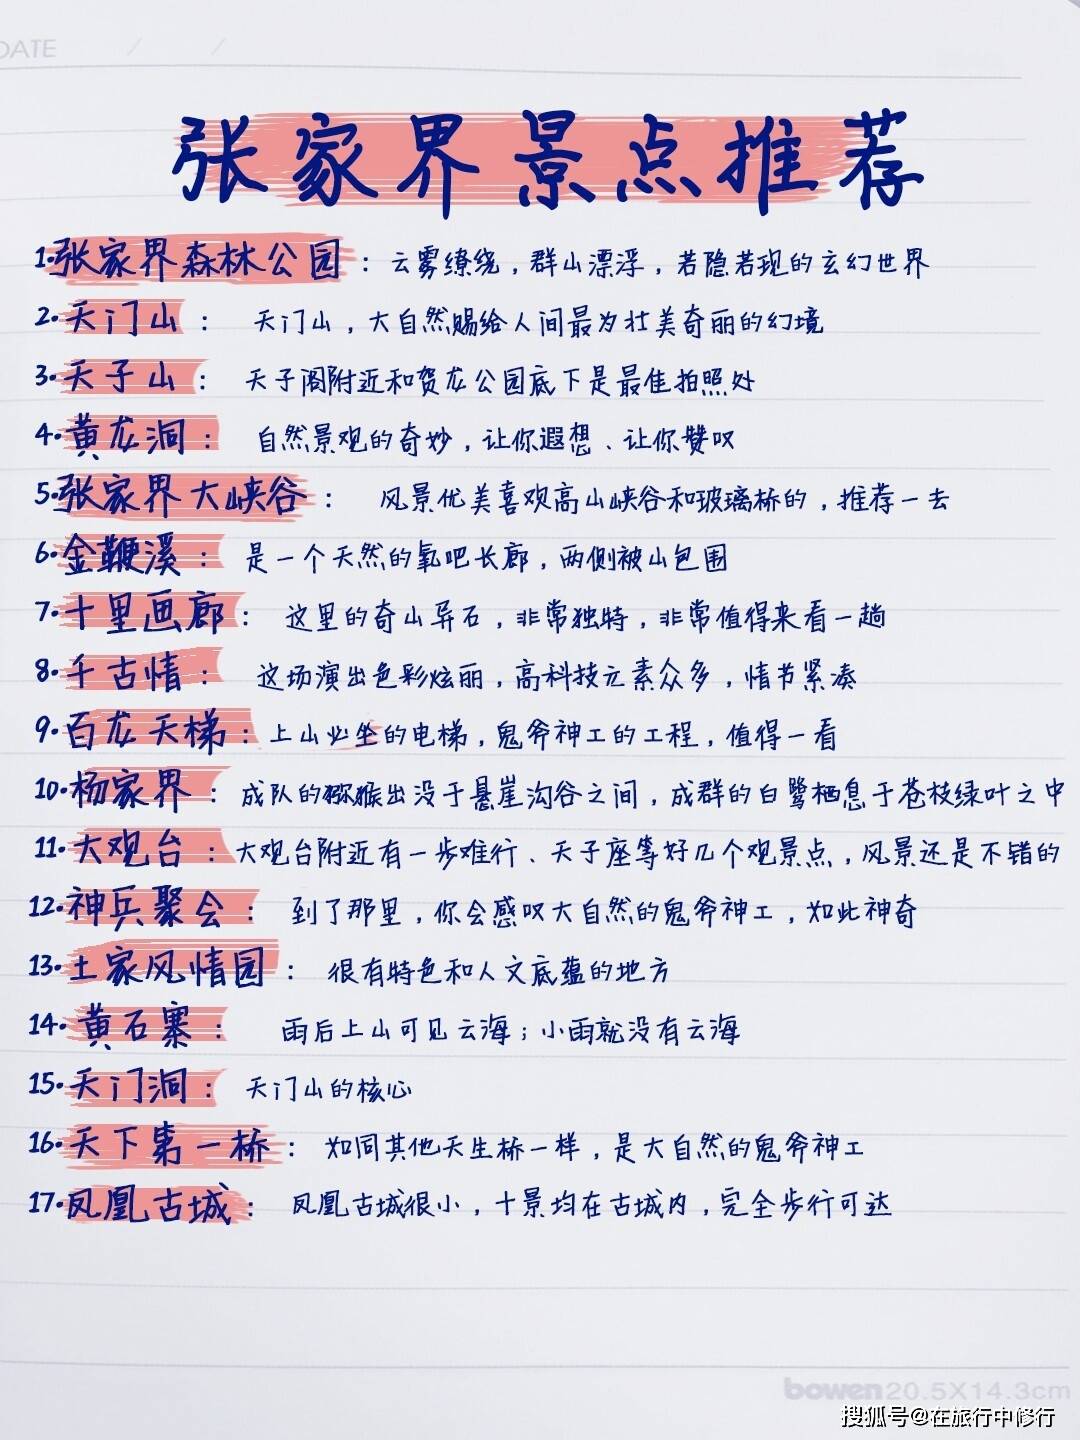 DATE / /
张家界景点推荐
1.张家界森林公园：云雾缭绕，群山漂浮，若隐若现的玄幻世界
2.天门山：天门山，大自然赐给人间最为壮美奇丽的幻境
3.天子山：天子阁附近和贺龙公园底下是最佳拍照处
4.黄龙洞：自然景观的奇妙，让你遐想、让你赞叹
5.张家界大峡谷：风景优美喜欢高山峡谷和玻璃桥的，推荐一去
6.金鞭溪：是一个天然的氧吧长廊，两侧被山包围
7.十里画廊：这里的奇山异石，非常独特，非常值得来看一趟
8.千古情：这场演出色彩炫丽，高科技元素众多，情节紧凑
9.百龙天梯：上山必坐的电梯，鬼斧神工的工程，值得一看
10.杨家界：成队的猕猴出没于悬崖沟谷之间，成群的白鹭栖息于苍枝绿叶之中
11.大观台：大观台附近有一步难行、天子座等好几个观景点，风景还是不错的
12.神兵聚会：到了那里，你会感叹大自然的鬼斧神工，如此神奇
13.土家风情园：很有特色和人文底蕴的地方
14.黄石寨：雨后上山可见云海；小雨就没有云海
15.天门洞：天门山的核心
16.天下第一桥：如同其他天生桥一样，是大自然的鬼斧神工
17.凤凰古城：凤凰古城很小，十景均在古城内，完全步行可达
bowen 20.5X14.3cm
搜狐号@在旅行中修行